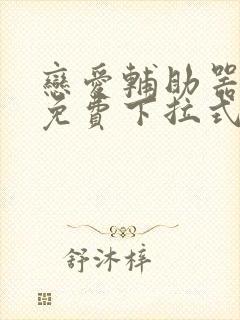 戀愛輔助器
免費下拉式
舒沐梓